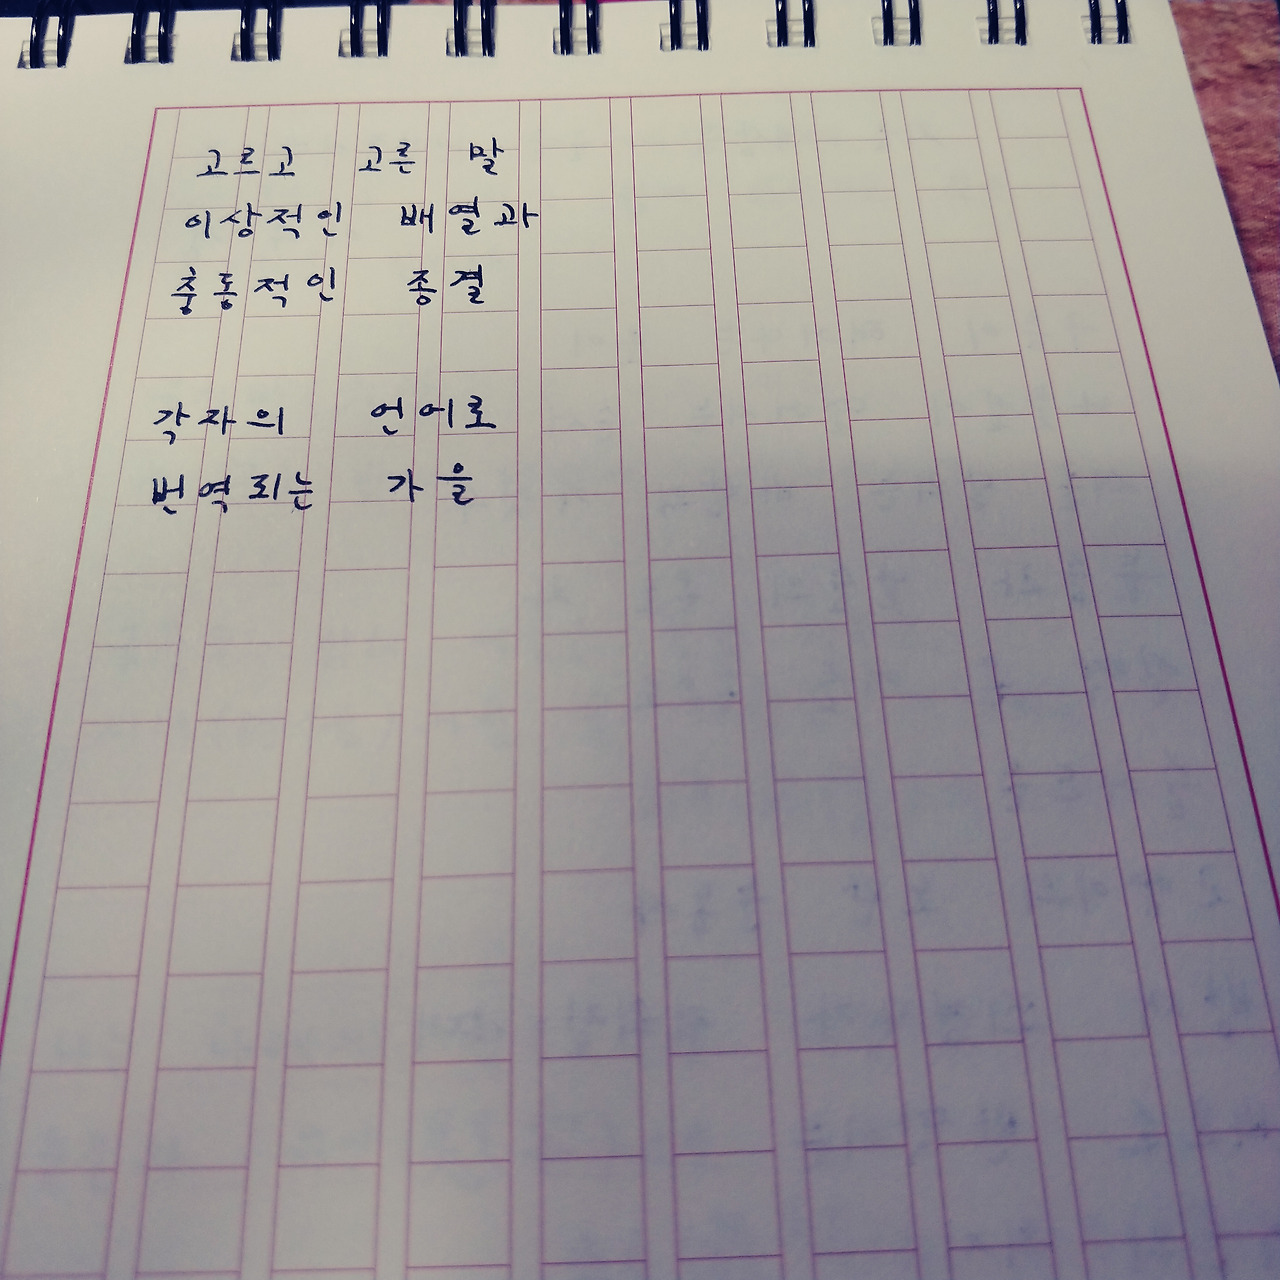 고르고 고른 말
이상적인 배열과
충동적인 종결
각자의 언어로
번역되는 가을